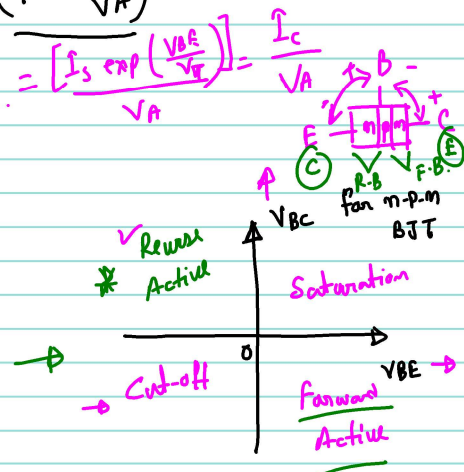 VA)
= [Is exp(VBE/VT)]/VA = Ic/VA
B -
+
E n p n C
C E
R-B F.B.
for n-p-n
BJT
VBC
Reverse
* Active
Saturation
0
VBE
Cut-off
Forward
Active